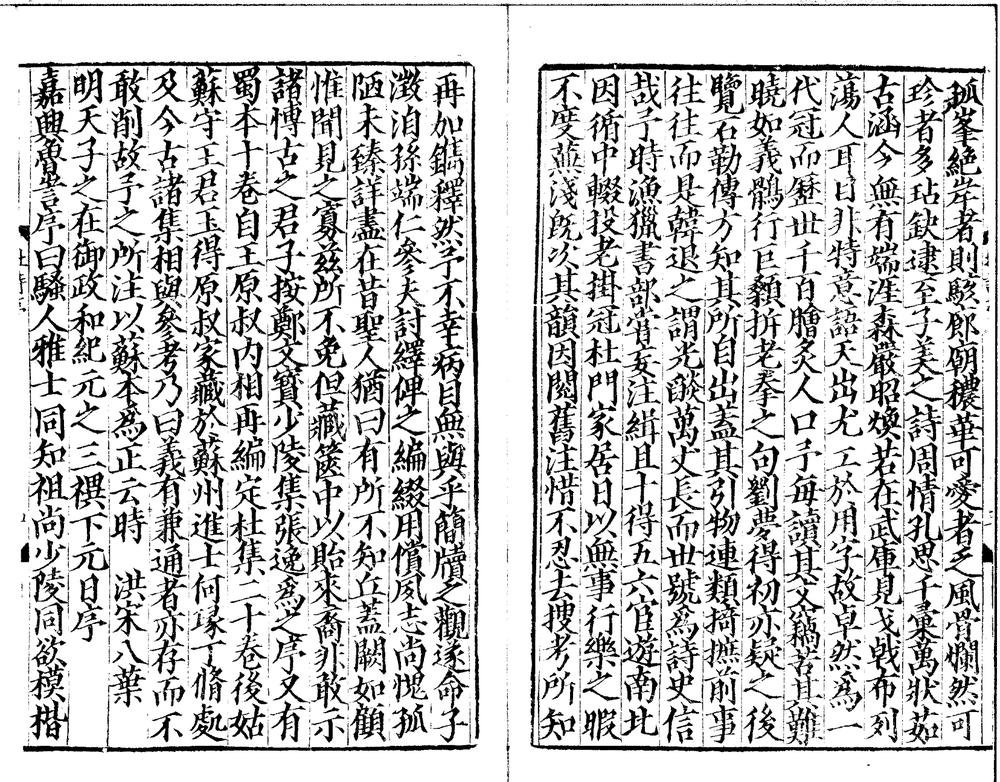 孤峯絕岸者則駭郎廟穠華可愛者乏風骨爛然可
珍者多玷缺逮至子美之詩周情孔思千彙萬狀茹
古涵今無有端涯森嚴昭煥若在武庫見戈戟布列
蕩人耳目非特意語天出尤工於用字故卓然為一
代冠而歷世千百膾炙人口予每讀其文竊苦其難
曉如義鶻行巨顙拆老拳之句劉夢得初亦疑之後
覽石勒傳方知其所自出蓋其引物連類掎摭前事
往往而是韓退之謂光燄萬丈長而世號為詩史信
哉予時漁獵書部嘗妄注緝且十得五六宦遊南北
因循中輟投老掛冠杜門家居日以無事行樂之暇
不度蕪淺旣次其韻因閱舊注惜不忍去搜考所知
再加鐫釋然予不幸病目無與乎簡牘之觀遂命子
澂洎孫端仁參夫討繹俾之編綴用償夙志尚愧孤
陋未臻詳盡在昔聖人猶曰有所不知丘蓋闕如顧
惟聞見之寡茲所不免但藏篋中以貽來裔非敢示
諸博古之君子按鄭文寶少陵集張逸為之序又有
蜀本十卷自王原叔内相再編定杜集二十卷後姑
蘇守王君玉得原叔家藏於蘇州進士何瑑丁脩處
及今古諸集相與參考乃曰義有兼通者亦存而不
敢削故予之所注以蘇本為正云時 洪宋八葉
明天子之在御政和紀元之三禩下元日序
嘉興魯訔序曰騷人雅士同知祖尚少陵同欲模楷